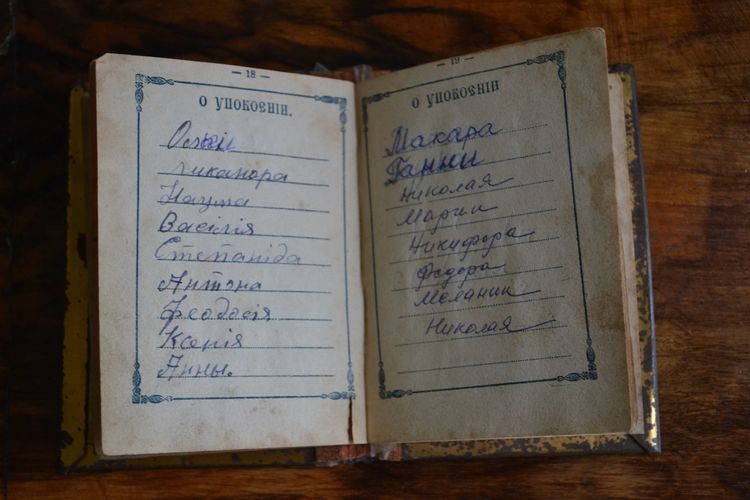 — 18 —
О УПОКОЄНІИ.
Никанора
Наума
Васілія
Степаніда
Антона
Феодосія
Ксенія
Анны.
— 19 —
О УПОКОЄНІИ
Макара
Ганни
Николая
Марии
Никифора
Федора
Мелании
Николая